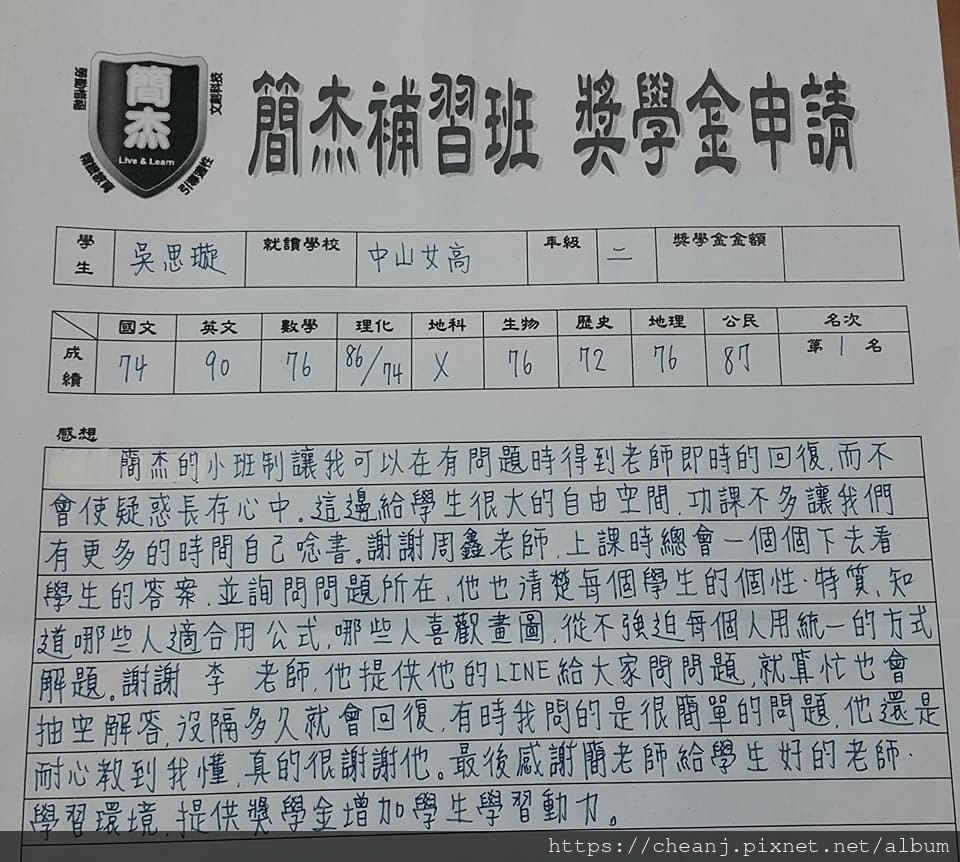 簡杰
Live & Learn
文創科技
引導適性
簡杰補習班 獎學金申請
學生 吳思璇 就讀學校 中山女高 年級 二 獎學金金額
國文 英文 數學 理化 地科 生物 歷史 地理 公民 名次
成績 74 90 76 86/74 X 76 72 76 87 第 1 名
感想
簡杰的小班制讓我可以在有問題時得到老師即時的回復,而不
會使疑惑長存心中。這邊給學生很大的自由空間,功課不多讓我們
有更多的時間自己唸書。謝謝周鑫老師,上課時總會一個個下去看
學生的答案,並詢問問題所在,他也清楚每個學生的個性、特質,知
道哪些人適合用公式,哪些人喜歡畫圖,從不強迫每個人用統一的方式
解題。謝謝 李 老師,他提供他的LINE給大家問問題,就算忙也會
抽空解答,沒隔多久就會回復,有時我問的是很簡單的問題,他還是
耐心教到我懂,真的很謝謝他。最後感謝簡老師給學生好的老師、
學習環境,提供獎學金增加學生學習動力。
https://cheanj.pixnet.net/album